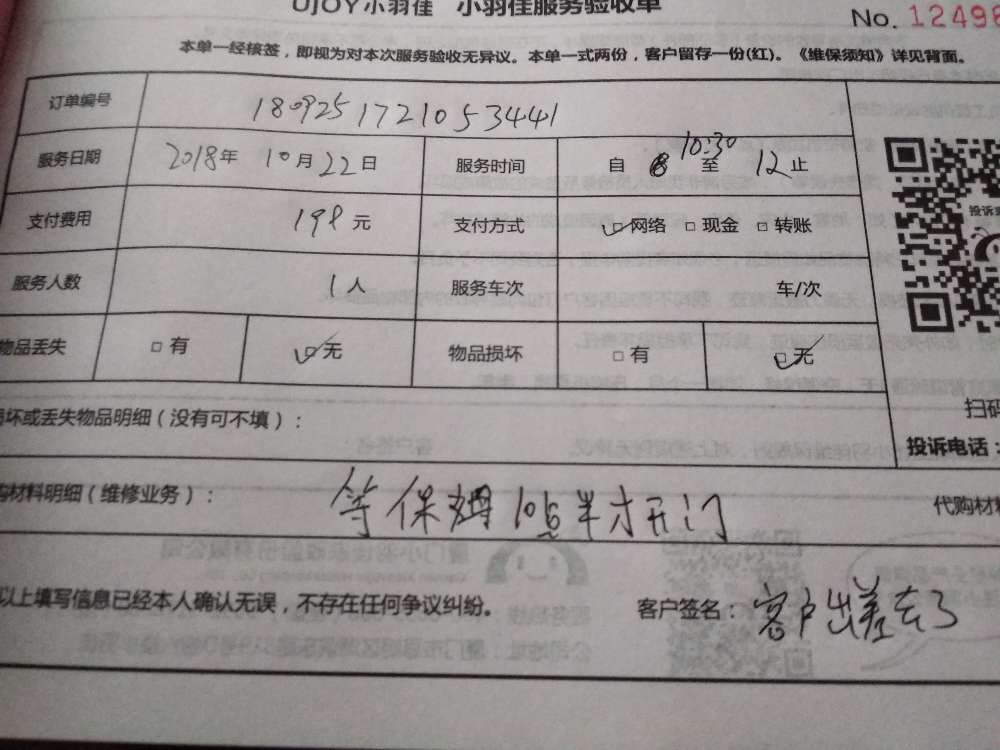 UJOY小羽佳 小羽佳服务验收单
No. 12498
本单一经核签，即视为对本次服务验收无异议。本单一式两份，客户留存一份(红)。《维保须知》详见背面。
订单编号 1809251721053441
服务日期 2018年 10月22日 服务时间 自 10:30 至 12止
支付费用 198元 支付方式 网络 现金 转账
服务人数 1人 服务车次 车/次
物品丢失 有 无 物品损坏 有 无
投诉
扫码
坏或丢失物品明细（没有可不填）：
投诉电话：
购材料明细（维修业务）： 等保姆10点半才开门 代购材料
以上填写信息已经本人确认无误，不存在任何争议纠纷。 客户签名：客户出差去了